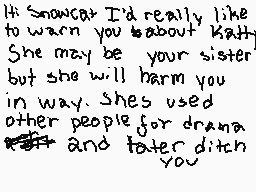 Hi Snowcat I'd really like
to warn you about Katty
She may be your sister
but she will harm you
in way. Shes used
other people for drama
and later ditch
you